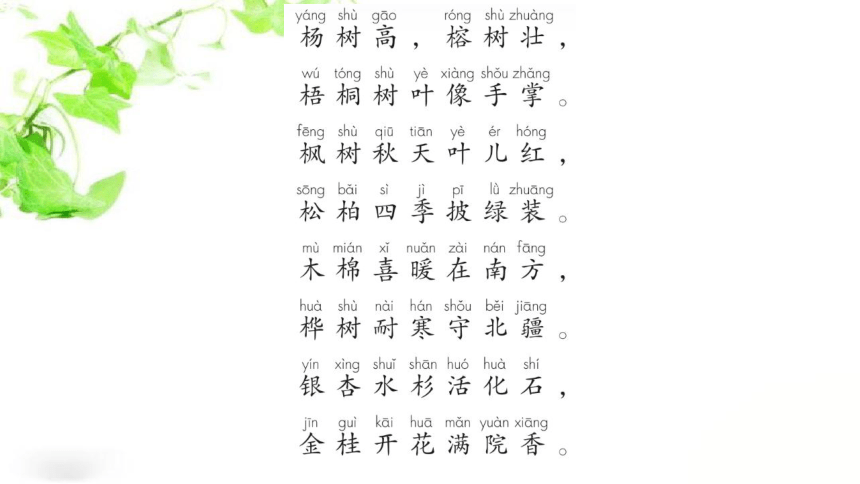 yáng shù gāo róng shù zhuàng
杨树高，榕树壮，
wú tóng shù yè xiàng shǒu zhǎng
梧桐树叶像手掌。
fēng shù qiū tiān yè ér hóng
枫树秋天叶儿红，
sōng bǎi sì jì pī lǜ zhuāng
松柏四季披绿装。
mù mián xǐ nuǎn zài nán fāng
木棉喜暖在南方，
huà shù nài hán shǒu běi jiāng
桦树耐寒守北疆。
yín xìng shuǐ shān huó huà shí
银杏水杉活化石，
jīn guì kāi huā mǎn yuàn xiāng
金桂开花满院香。